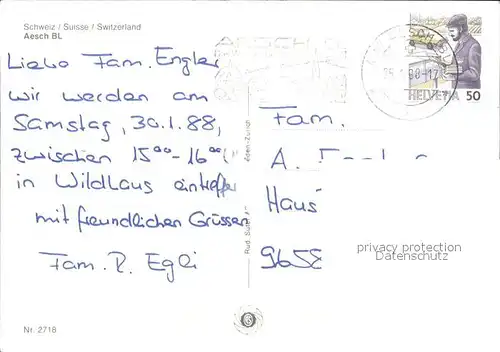 Schweiz / Suisse / Switzerland
Aesch BL
Liebe Fam. Engler
wir werden am
Samstag, 30.1.88,
zwischen 15⁰⁰-16⁰⁰
in Wildhaus eintreffe
mit freundlichen Grüssen
Fam. R. Egli
HELVETIA 50
Fam.
A.
Haus
9658
privacy protection
Datenschutz
Nr. 2718